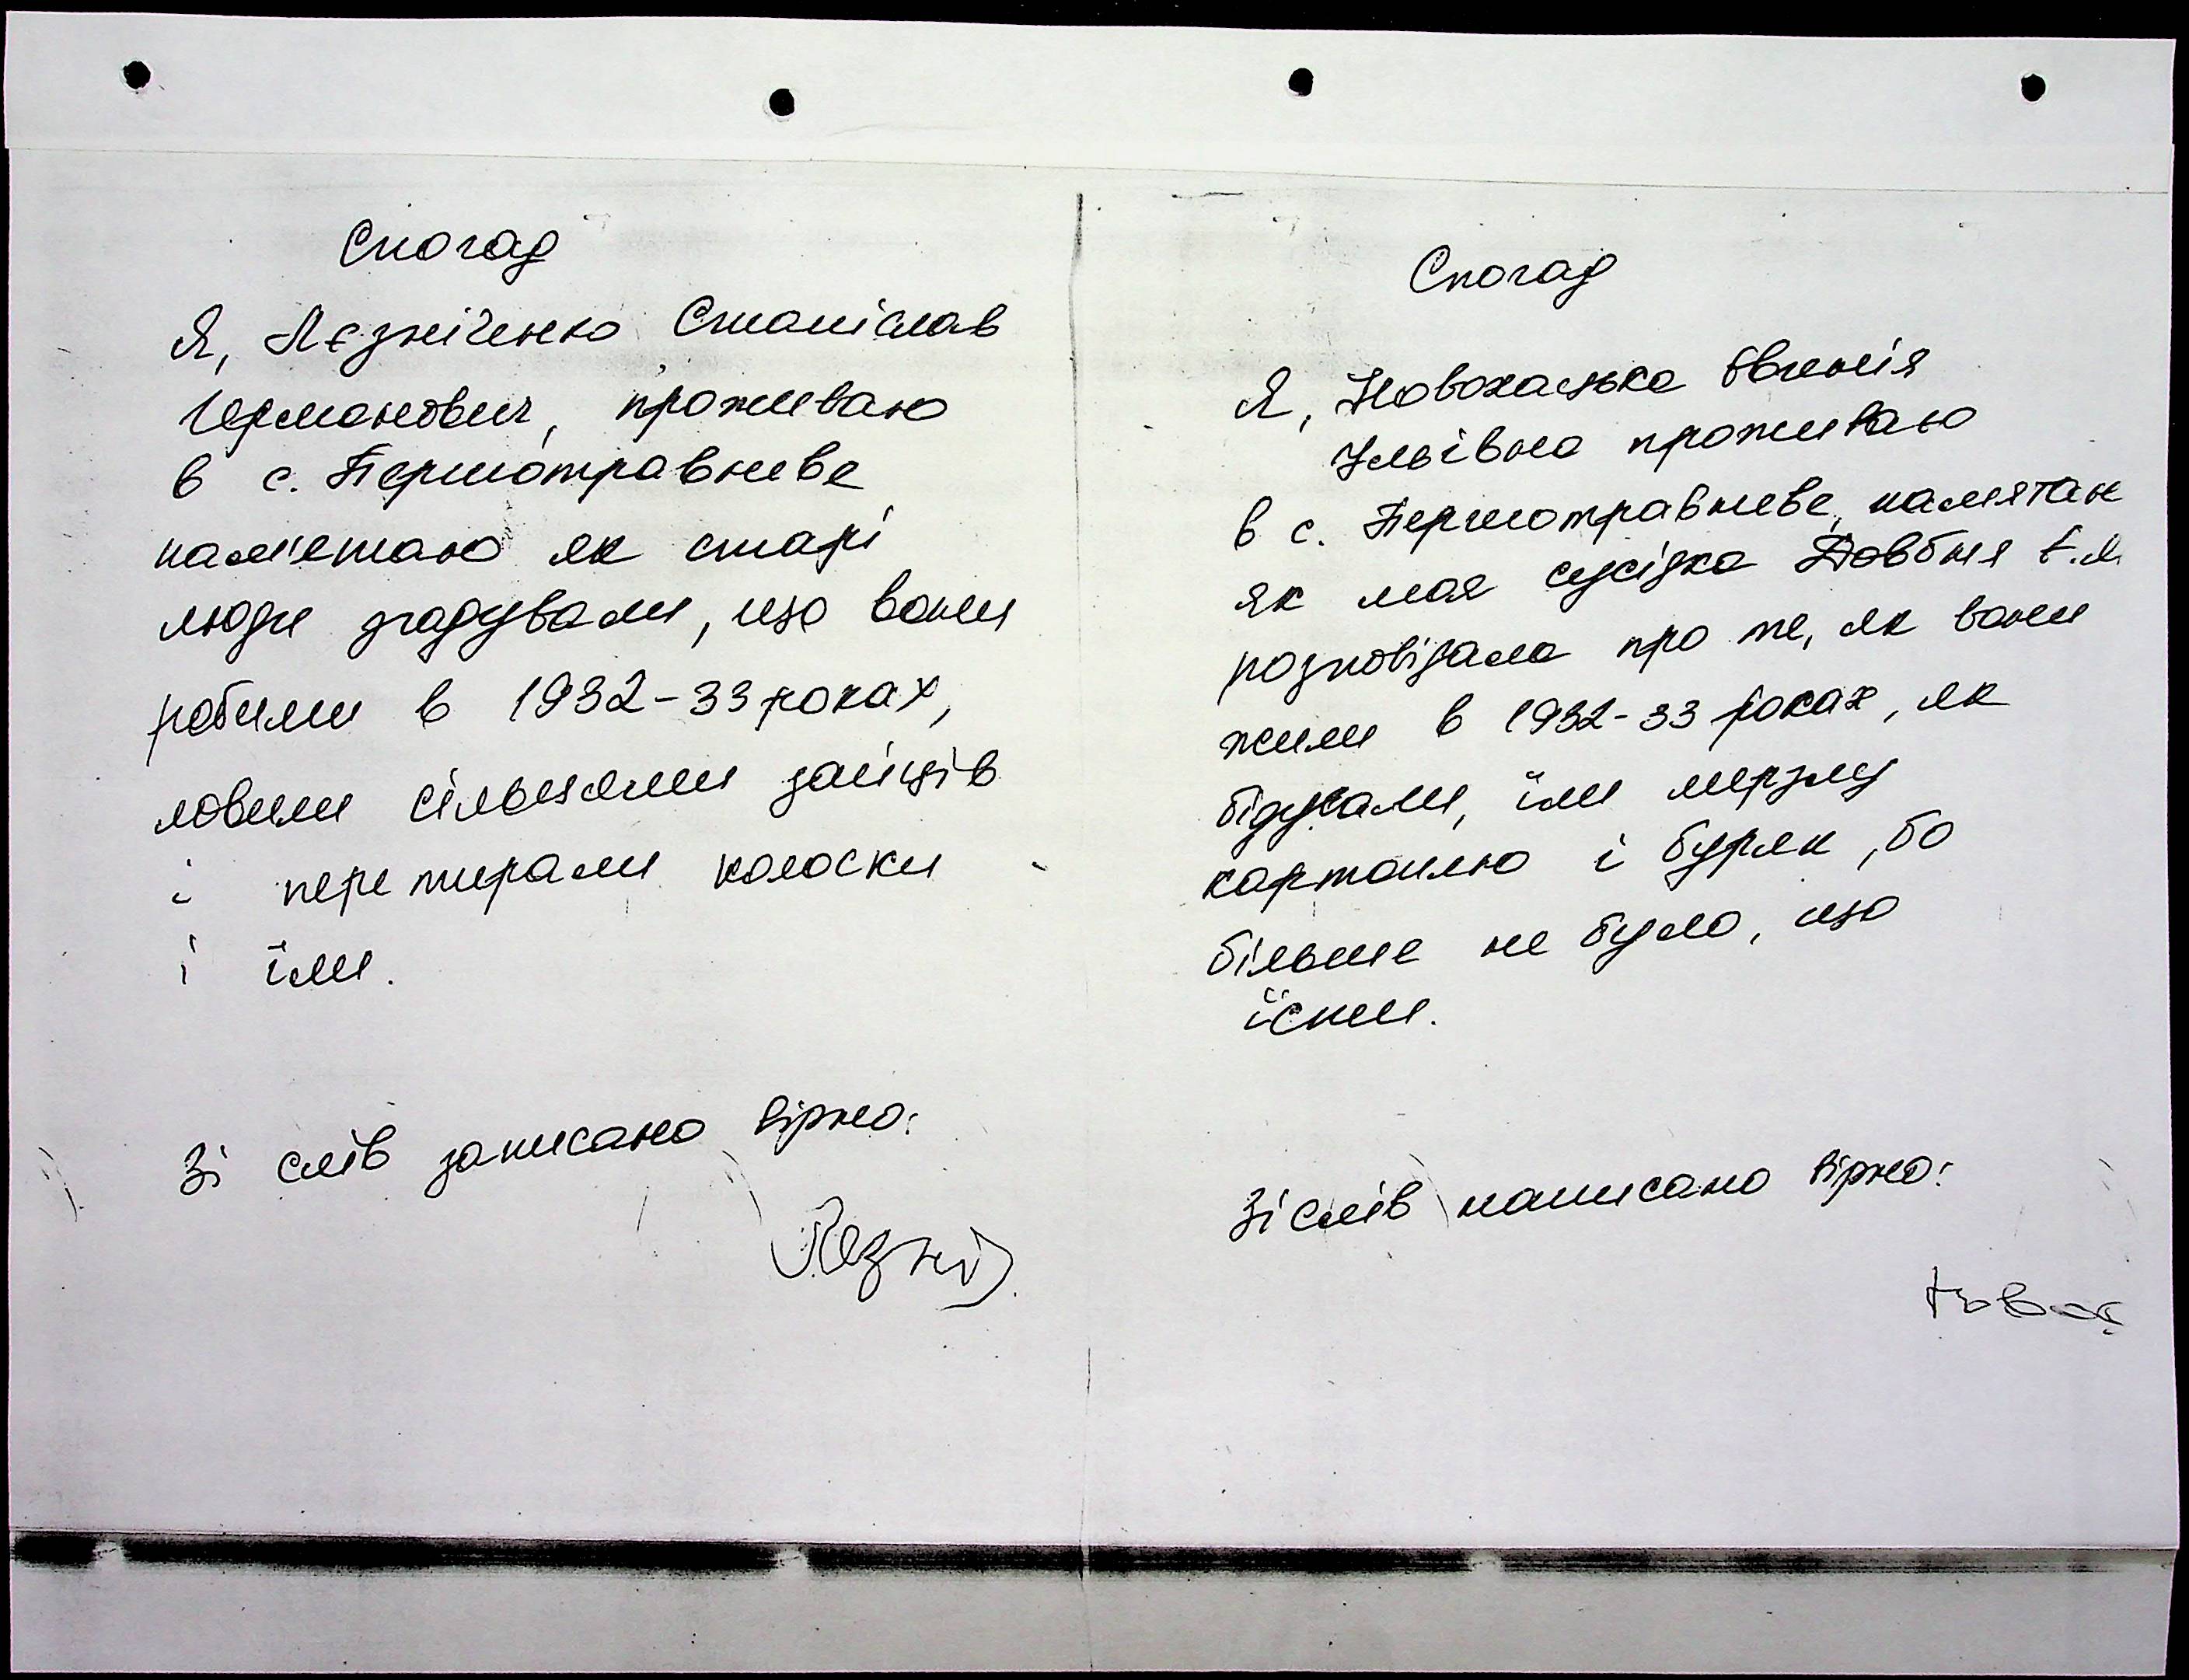 Спогад
Я, Лєзніченко Станіслав
Германович, проживаю
в с. Першотравневе
пам'ятаю як старі
люди згадували, що вони
робили в 1932-33 роках,
ловили сільцями зайців
і перетирали колоски
і їли.
Зі слів записано вірно:
Лезні
Спогад
Я, Новохацька Євгенія
Ільівна проживаю
в с. Першотравневе, памятаю
як моя сусідка Довбня Є.Я.
розповідала про те, як вони
жили в 1932-33 роках, як
бідували, їли мерзлу
картоплю і буряк, бо
більше не було, що
їсти.
Зі слів написано вірно: